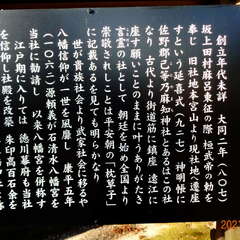 創立年代未詳 大同二年（八〇七）
坂上田村麻呂東征の際 桓武帝の勅を
奉じ 旧社地本宮山より現社地へ遷座
すという延喜式（九二七）神明帳に
佐野郡己等乃麻知神社とあるはこの社
なり 古代より街道筋に鎮座 遠江に
座す願いごとのままに叶うありがたき
言霊の社として 朝廷を始め全国より
崇敬されしことは平安朝の「枕草子」
に記載あるを見ても明らかなり
世が貴族社会より武家社会に移るや
八幡信仰が一世を風靡し 康平五年
（一〇六二）源頼義が石清水八幡宮を
当社に勧請し 以来八幡宮を併称す
江戸期に入りては 徳川幕府も当社
を信仰し社殿を改築 朱印高百石余を